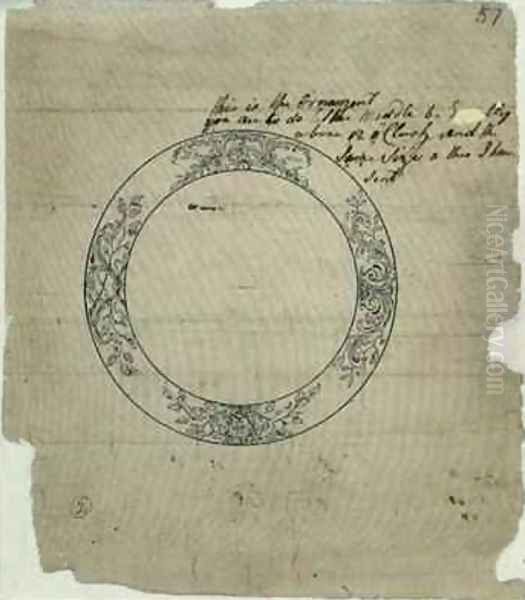 57
this is the Ornament
you are to do the Middle to
above 12 o'Clock and the
Same Size as this I have
Sent
NiceArtGallery.com